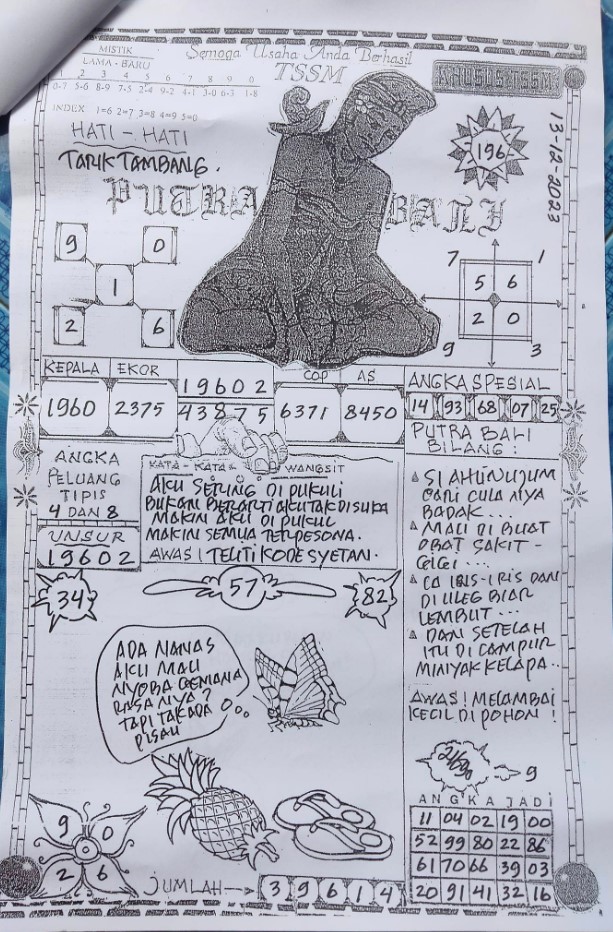 MISTIK
LAMA - BARU
1 2 3 4 5 6 7 8 9 0
0-7 5-6 8-9 7-5 2-4 9-2 4-1 3-0 6-3 1-8
INDEX 1=6 2=7 3=8 4=9 5=0
Semoga Usaha Anda Berhasil
TSSM
KHUSUS TSSM
13-12-2023
HATI - HATI
TARIK TAMBANG.
196
PUTRA BALI
9 0
1
2 6
7 1
5 6
2 0
9 3
KEPALA EKOR
1960 2375
19602
43875
COP AS
6371 8450
ANGKA SPESIAL
14 93 68 07 25
ANGKA
PELUANG
TIPIS
4 DAN 8
UNSUR
19602
KATA - KATA & WANGSIT
AKU SERING DI PUKULI
BUKAN BERARTI AKU TAK DI SUKA
MAKIN AKU DI PUKUL
MAKIN SEMUA TERPESONA.
AWAS! TELITI KODE SYETAN.
PUTRA BALI
BILANG :
SI AHLI NUJUM
CARI CULA NYA
BADAK...
MAU DI BUAT
OBAT SAKIT -
...
DI ULEG BIAR
LEMBUT ...
DAN SETELAH
ITU DI CAMPUR
MINYAK KELAPA..
AWAS! MELAMBAI
KECIL DI POHON !
34 57 82
ADA NANAS
AKU MAU
NYOBA GEMANA
RASA NYA ?
TAPI TAK ADA
PISAU
9
ANGKA JADI
11 04 02 19 00
52 99 80 22 86
61 70 66 39 03
20 91 41 32 16
9 0
2 6
JUMLAH 3 9 6 1 4